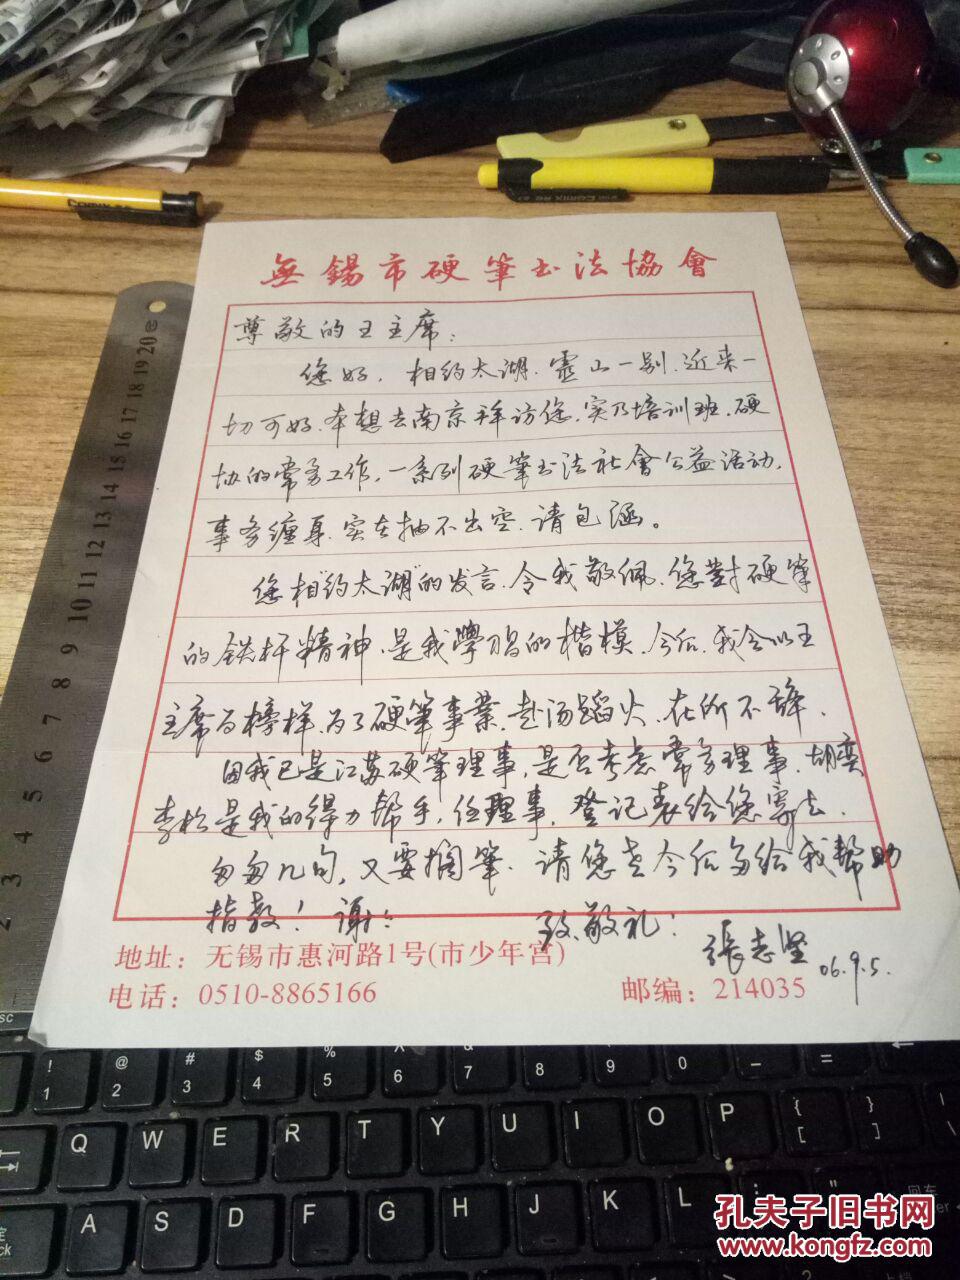 無錫市硬筆书法協會
尊敬的王主席：
您好，相约太湖.靈山一别.近来一
切可好.本想去南京拜访您.实乃培训班.硬
协的常务工作，一系列硬筆书法社會公益活动，
事务缠身.实在抽不出空.请包涵。
您"相约太湖"的发言.令我敬佩.您對硬筆
的铁杆精神.是我學习的楷模.今后.我会以王
主席为榜样.为了硬筆事業.赴汤蹈火.在所不辞.
因我已是江苏硬筆理事，是否考虑常务理事.胡奕
李松是我的得力帮手，任理事，登记表给您寄去.
匆匆几句，又要搁筆.请您老今后多给我幫助
指教！谢：
致敬礼！
張志坚 06.9.5.
地址：无锡市惠河路1号(市少年宫)
电话：0510-8865166 邮编：214035
Comix
Comix
20 19 18 17 16 15 14 13 12 11 10 9 8 7 6 5 4 3 2
! 1 @ 2 # 3 $ 4 % 5 6 & 7 * 8 ( 9 ) 0 _ - + =
Q W E R T Y U I O P { [ } ]
A S D F G H J K L
回车
孔夫子旧书网
www.kongfz.com